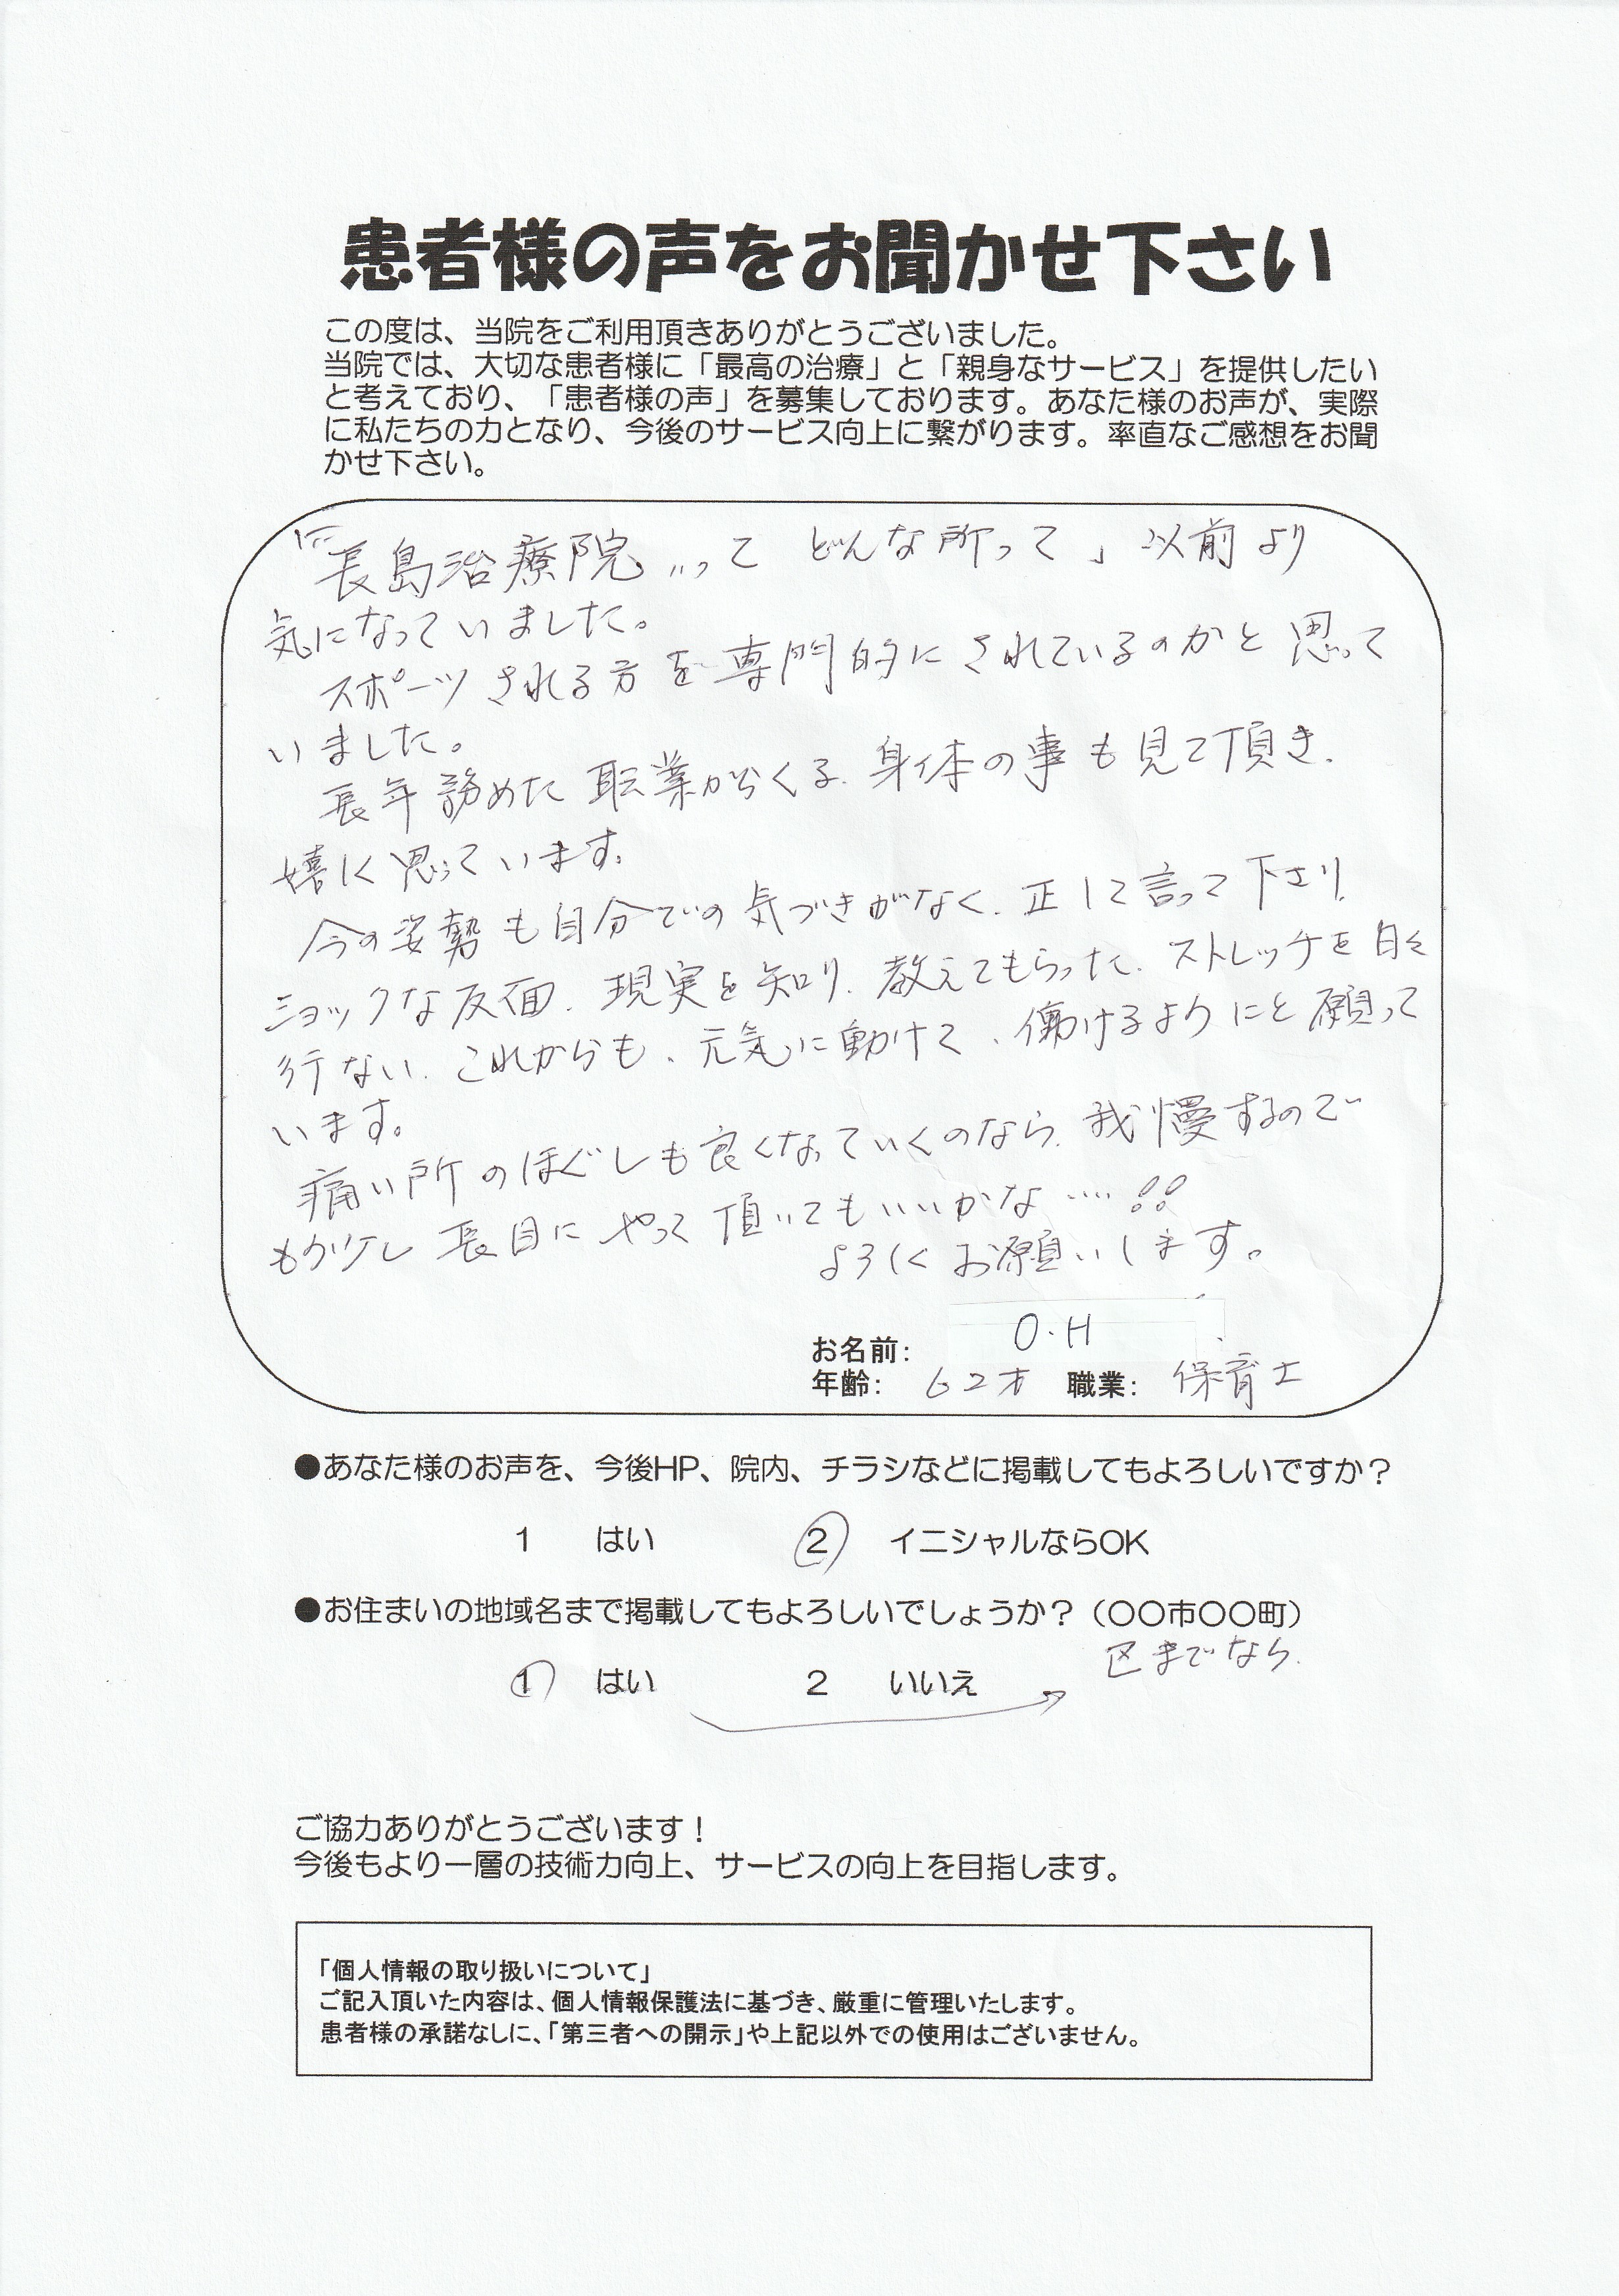 患者様の声をお聞かせ下さい
この度は、当院をご利用頂きありがとうございました。
当院では、大切な患者様に「最高の治療」と「親身なサービス」を提供したい
と考えており、「患者様の声」を募集しております。あなた様のお声が、実際
に私たちの力となり、今後のサービス向上に繋がります。率直なご感想をお聞
かせ下さい。
「"長島治療院"って どんな所って」以前より
気になっていました。
スポーツされる方を専門的にされているのかと思って
いました。
長年務めた職業からくる、身体の事も見て頂き、
嬉しく思っています。
今の姿勢も自分での気づきがなく、正して言って下さり、
ショックな反面、現実を知り、教えてもらった、ストレッチを日々
行ない、これからも、元気に動けて、働けるようにと願って
います。
痛い所のほぐしも良くなっていくのなら、我慢するので
もう少し長目にやって頂いてもいいかな…!!
よろしくお願いします。
お名前: O・H
年齢: 62才 職業: 保育士
●あなた様のお声を、今後HP、院内、チラシなどに掲載してもよろしいですか？
1 はい 2 イニシャルならOK
●お住まいの地域名まで掲載してもよろしいでしょうか？（〇〇市〇〇町）
区までなら
1 はい 2 いいえ
ご協力ありがとうございます！
今後もより一層の技術力向上、サービスの向上を目指します。
「個人情報の取り扱いについて」
ご記入頂いた内容は、個人情報保護法に基づき、厳重に管理いたします。
患者様の承諾なしに、「第三者への開示」や上記以外での使用はございません。